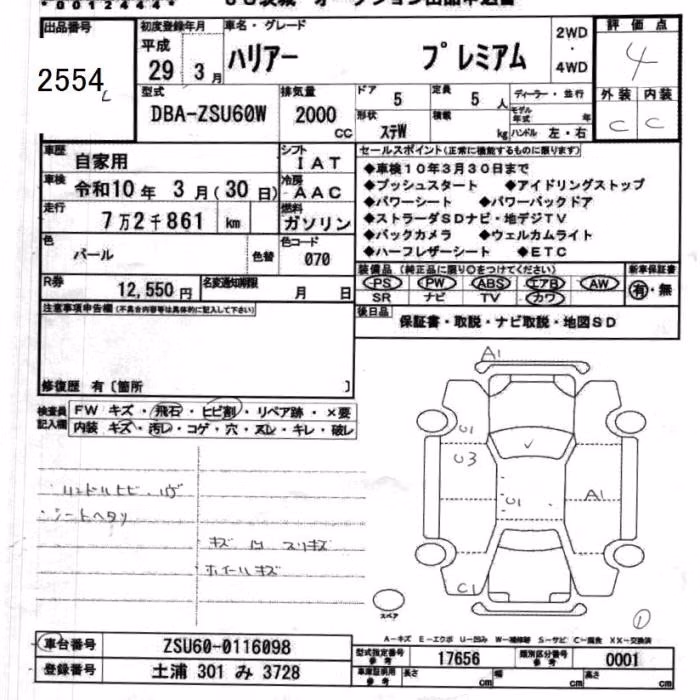 *00124444*
オークション出品申込書
出品番号 2554
初度登録年月 平成 29 3月
車名・グレード ハリアー プレミアム
2WD・4WD
評価点 4
外装 内装
C C
型式 DBA-ZSU60W
排気量 2000 CC
ドア 5
定員 5人
ディーラー・並行
形状 ステW
積載 kg
モデル年式 年
ハンドル 左・右
車歴 自家用
シフト IAT
セールスポイント(正常に機能するものに限ります)
車検 令和10年 3月(30日)
冷房 AAC
◆車検10年3月30日まで
◆プッシュスタート ◆アイドリングストップ
◆パワーシート ◆パワーバックドア
◆ストラーダSDナビ・地デジTV
◆バックカメラ ◆ウェルカムライト
◆ハーフレザーシート ◆ETC
走行 7万2千861 km
燃料 ガソリン
色 パール 色替
色コード 070
装備品(純正品に限り○をつけてください) 新車保証書
PS PW ABS エアB AW 有・無
SR ナビ TV カワ
R券 12,550円
名変通知期限 月 日
後日品 保証書・取説・ナビ取説・地図SD
注意事項申告欄(不具合内容等は具体的に記入して下さい)
修復歴 有〔箇所 〕
検査員記入欄
FW キズ・飛石・ヒビ割・リペア跡・×要
内装 キズ・汚レ・コゲ・穴・スレ・キレ・破レ
シートヘタリ
キズ 凹 スリキズ
ホイールキズ
A1
U1
U3
U1
A1
C1
スペア
①
A-キズ E-エクボ U-凹み W-補修跡 S-サビ C-腐食 XX-交換済
車台番号 ZSU60-0116098
登録番号 土浦 301 み 3728
型式指定番号 参考 17656
類別区分番号 参考 0001
車庫証明用 参考 長さ cm 幅 cm 高さ cm